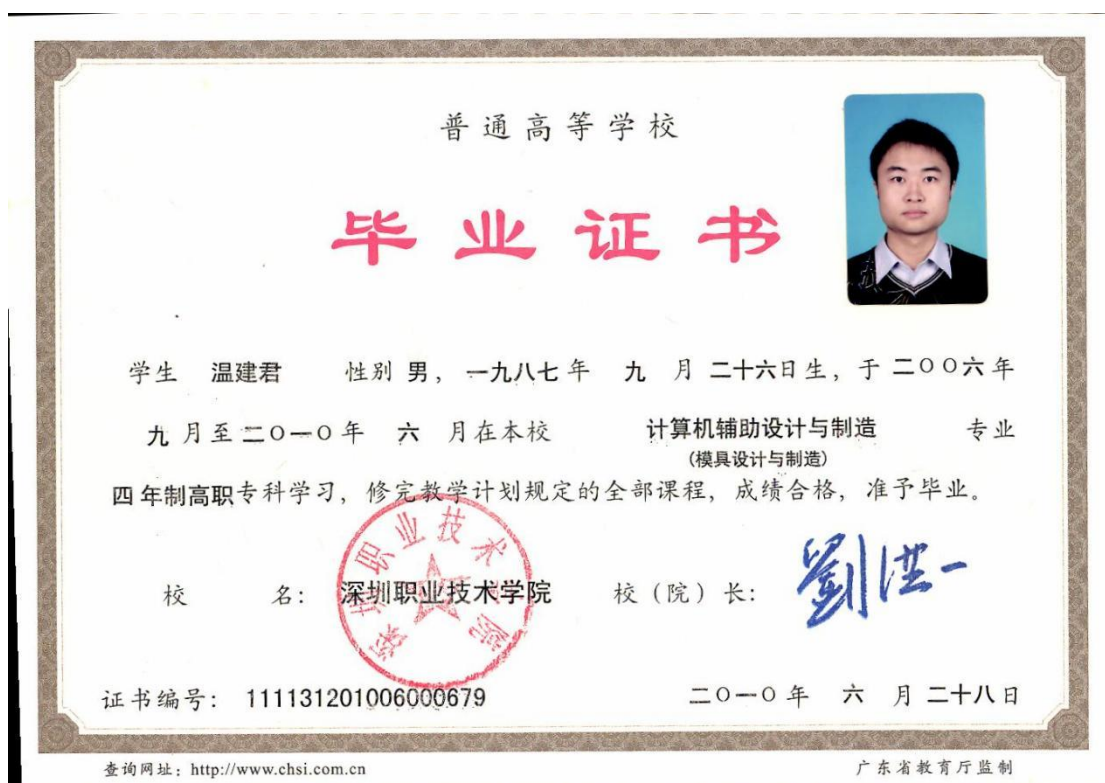 普通高等学校
毕业证书
学生 温建君 性别 男，一九八七年 九 月 二十六日生，于 二〇〇六年
九 月至 二〇一〇年 六 月在本校 计算机辅助设计与制造 专业
(模具设计与制造)
四 年制高职专科学习，修完教学计划规定的全部课程，成绩合格，准予毕业。
深圳职业技术学院
校 名： 深圳职业技术学院 校（院）长： 劉洪一
证书编号： 111131201006000679 二〇一〇年 六 月 二十八日
查询网址：http://www.chsi.com.cn 广东省教育厅监制